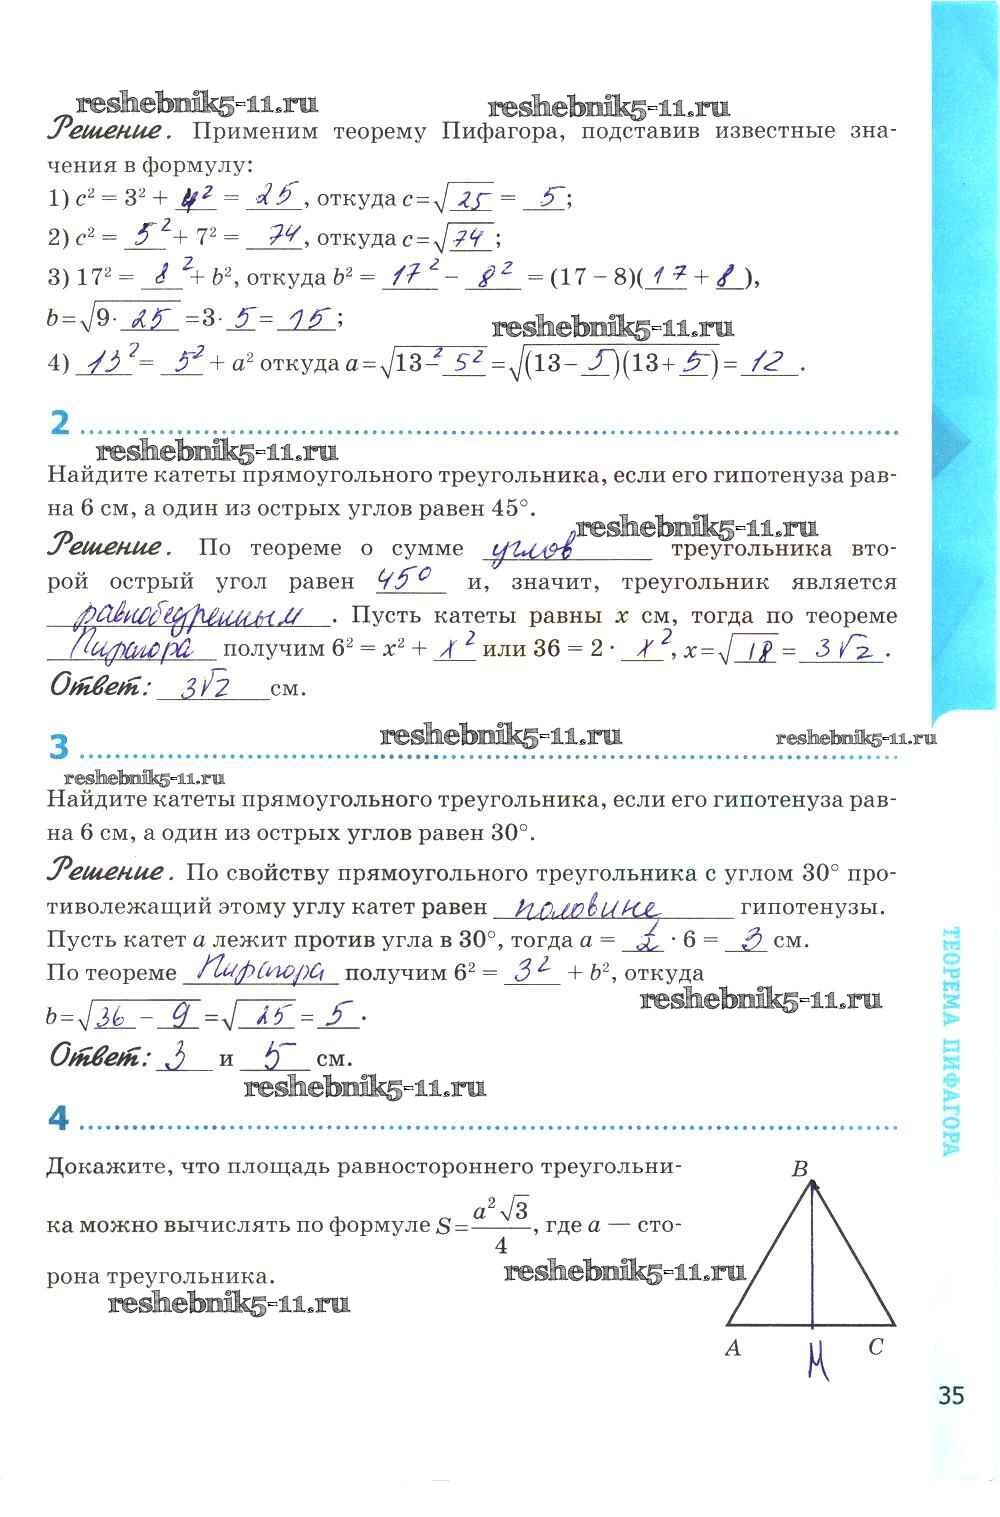 reshebnik5-11.ru reshebnik5-11.ru
Решение. Применим теорему Пифагора, подставив известные зна-
чения в формулу:
1) c² = 3² + 4² = 25, откуда c=√25 = 5;
2) c² = 5² + 7² = 74, откуда c=√74;
3) 17² = 8² + b², откуда b² = 17² − 8² = (17 − 8)(17 + 8),
b=√9·25 =3·5= 15;
reshebnik5-11.ru
4) 13² = 5² + a² откуда a=√13−² 5² =√(13−5)(13+5)= 12.
2
reshebnik5-11.ru
Найдите катеты прямоугольного треугольника, если его гипотенуза рав-
на 6 см, а один из острых углов равен 45°.
reshebnik5-11.ru
Решение. По теореме о сумме углов треугольника вто-
рой острый угол равен 45° и, значит, треугольник является
равнобедренным. Пусть катеты равны x см, тогда по теореме
Пифагора получим 6² = x² + x² или 36 = 2 · x², x=√18 = 3√2.
Ответ: 3√2 см.
reshebnik5-11.ru reshebnik5-11.ru
3
reshebnik5-11.ru
Найдите катеты прямоугольного треугольника, если его гипотенуза рав-
на 6 см, а один из острых углов равен 30°.
Решение. По свойству прямоугольного треугольника с углом 30° про-
тиволежащий этому углу катет равен половине гипотенузы.
Пусть катет a лежит против угла в 30°, тогда a = 1/2 · 6 = 3 см.
По теореме Пифагора получим 6² = 3² + b², откуда
reshebnik5-11.ru
b=√36 − 9 =√25 = 5.
Ответ: 3 и 5 см.
reshebnik5-11.ru
4
Докажите, что площадь равностороннего треугольни-
ка можно вычислять по формуле S= a²√3/4, где a — сто-
рона треугольника.
reshebnik5-11.ru
reshebnik5-11.ru
B
A M C
ТЕОРЕМА ПИФАГОРА
35